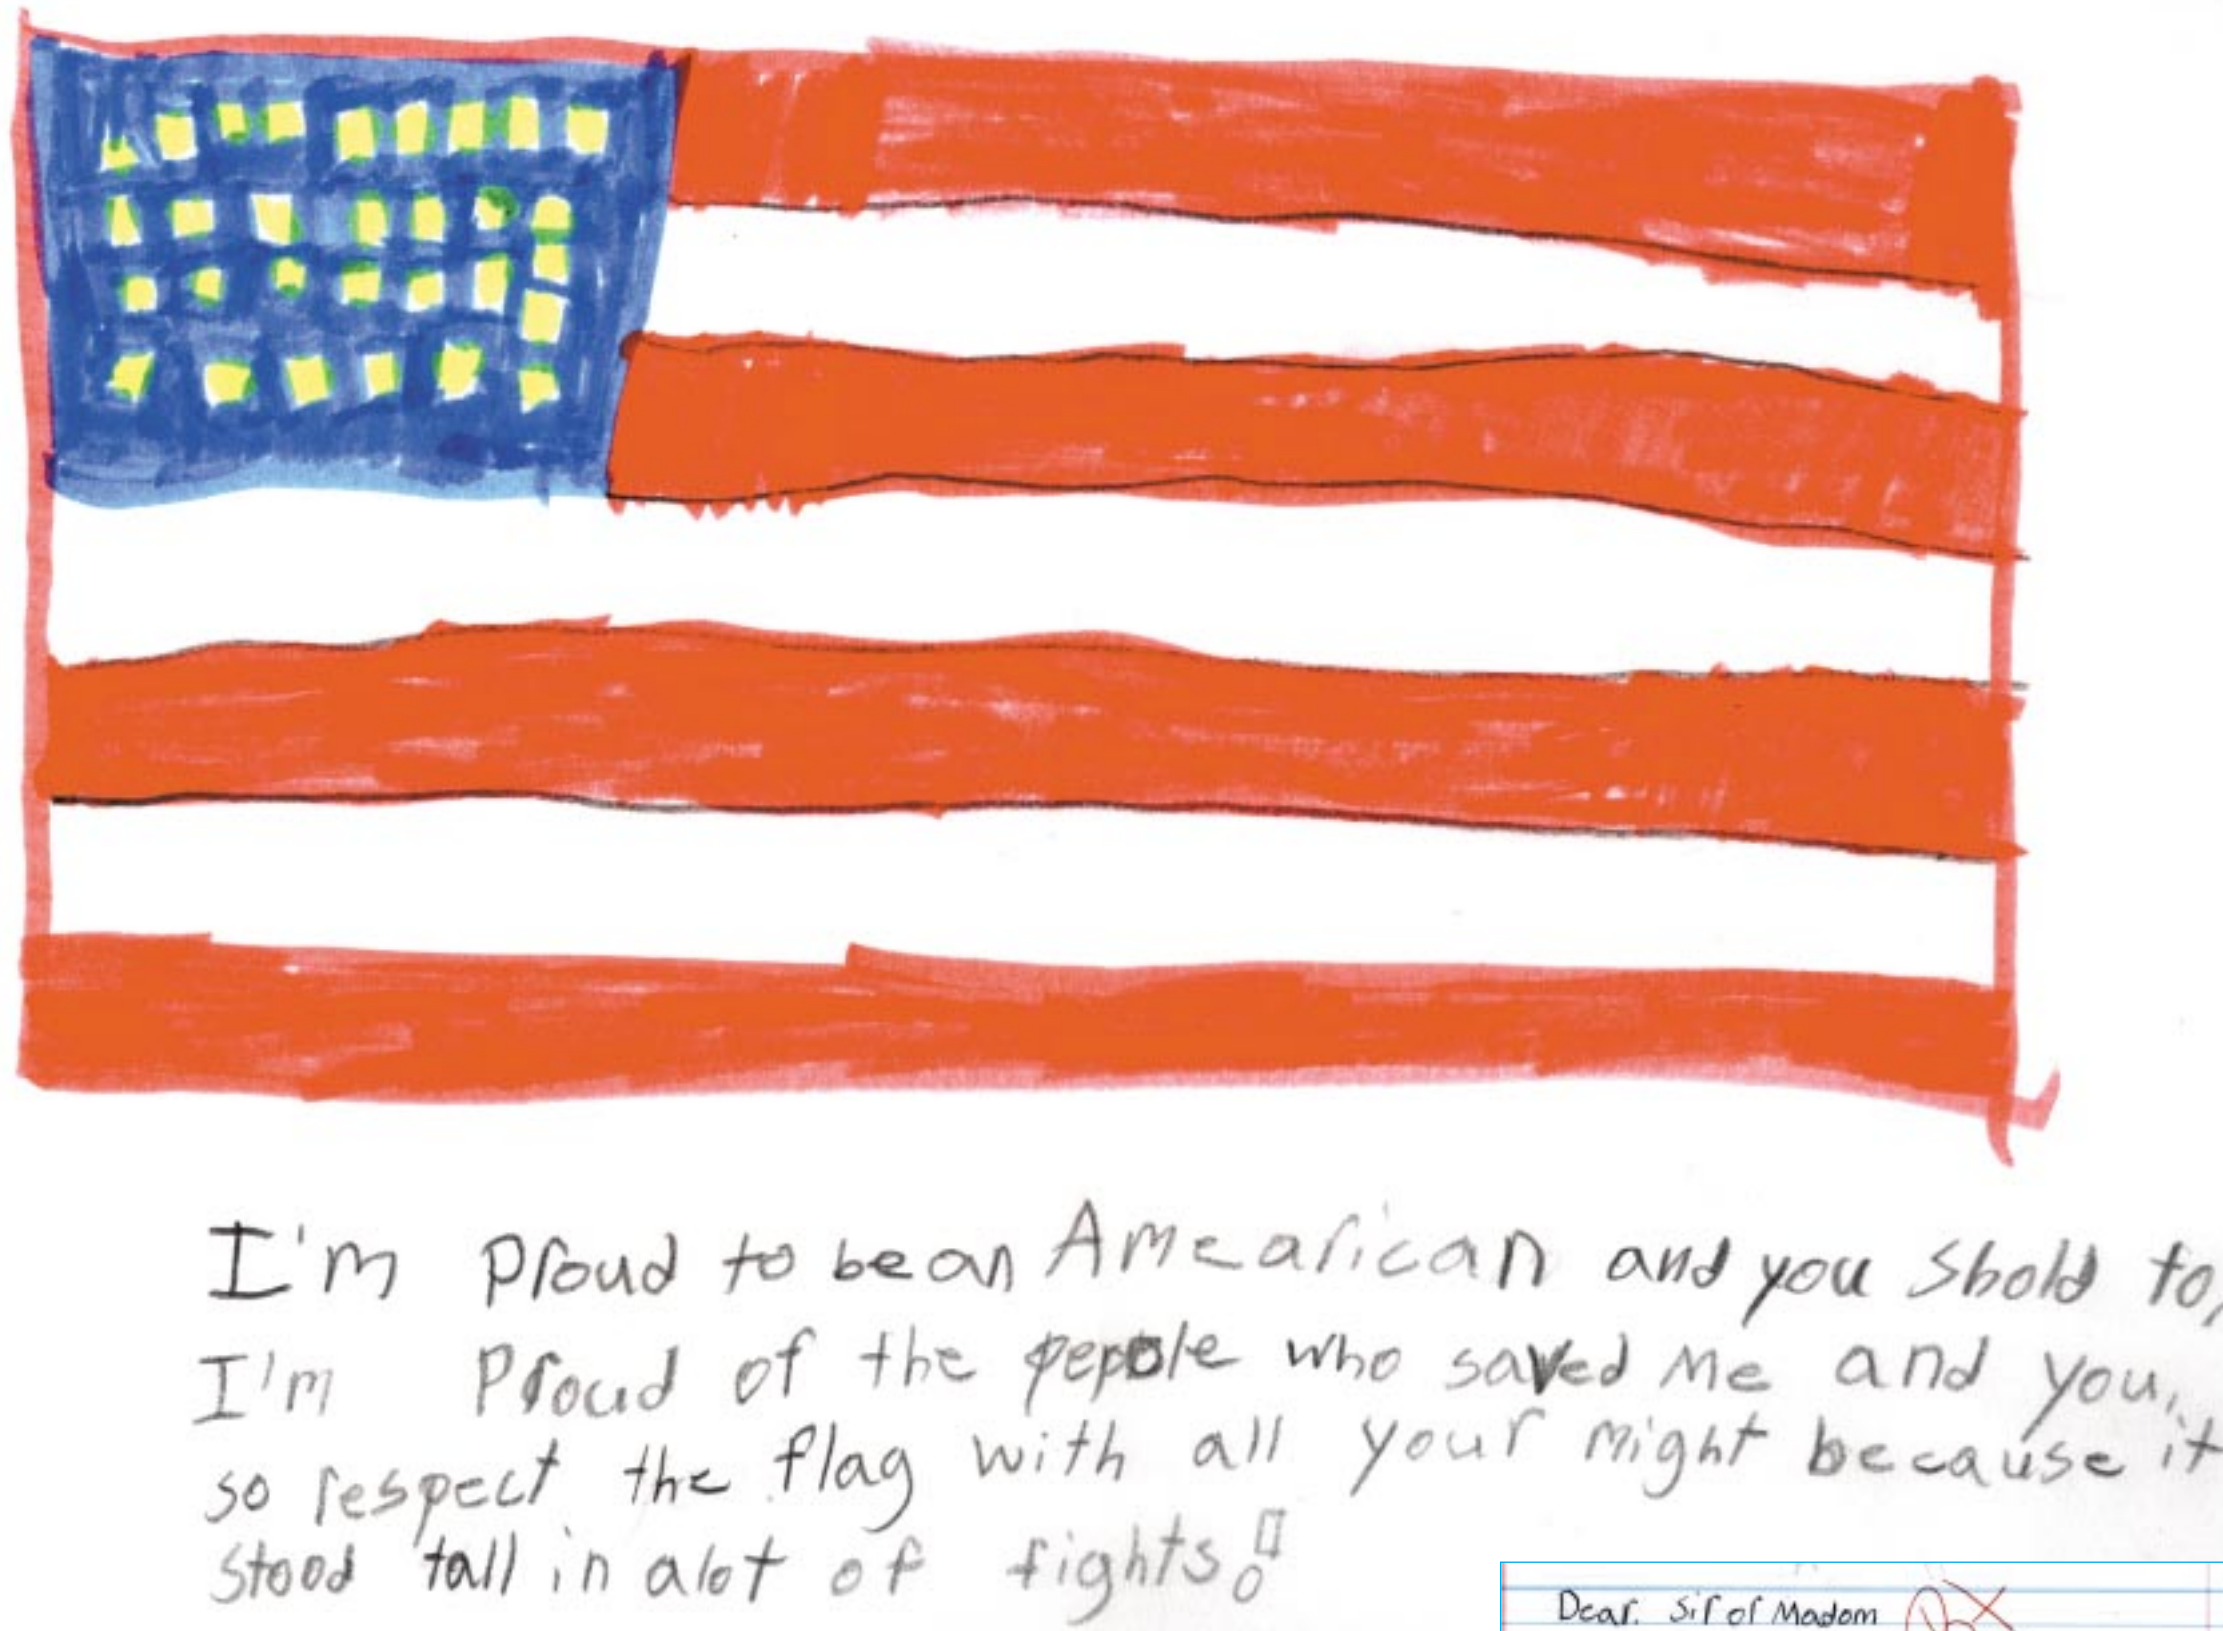 I'm Proud to be an Amearican and you shold to,
I'm Proud of the pepole who saved me and you,
so respect the flag with all your might because it
stood tall in alot of fights!
Dear. Sir or Madom